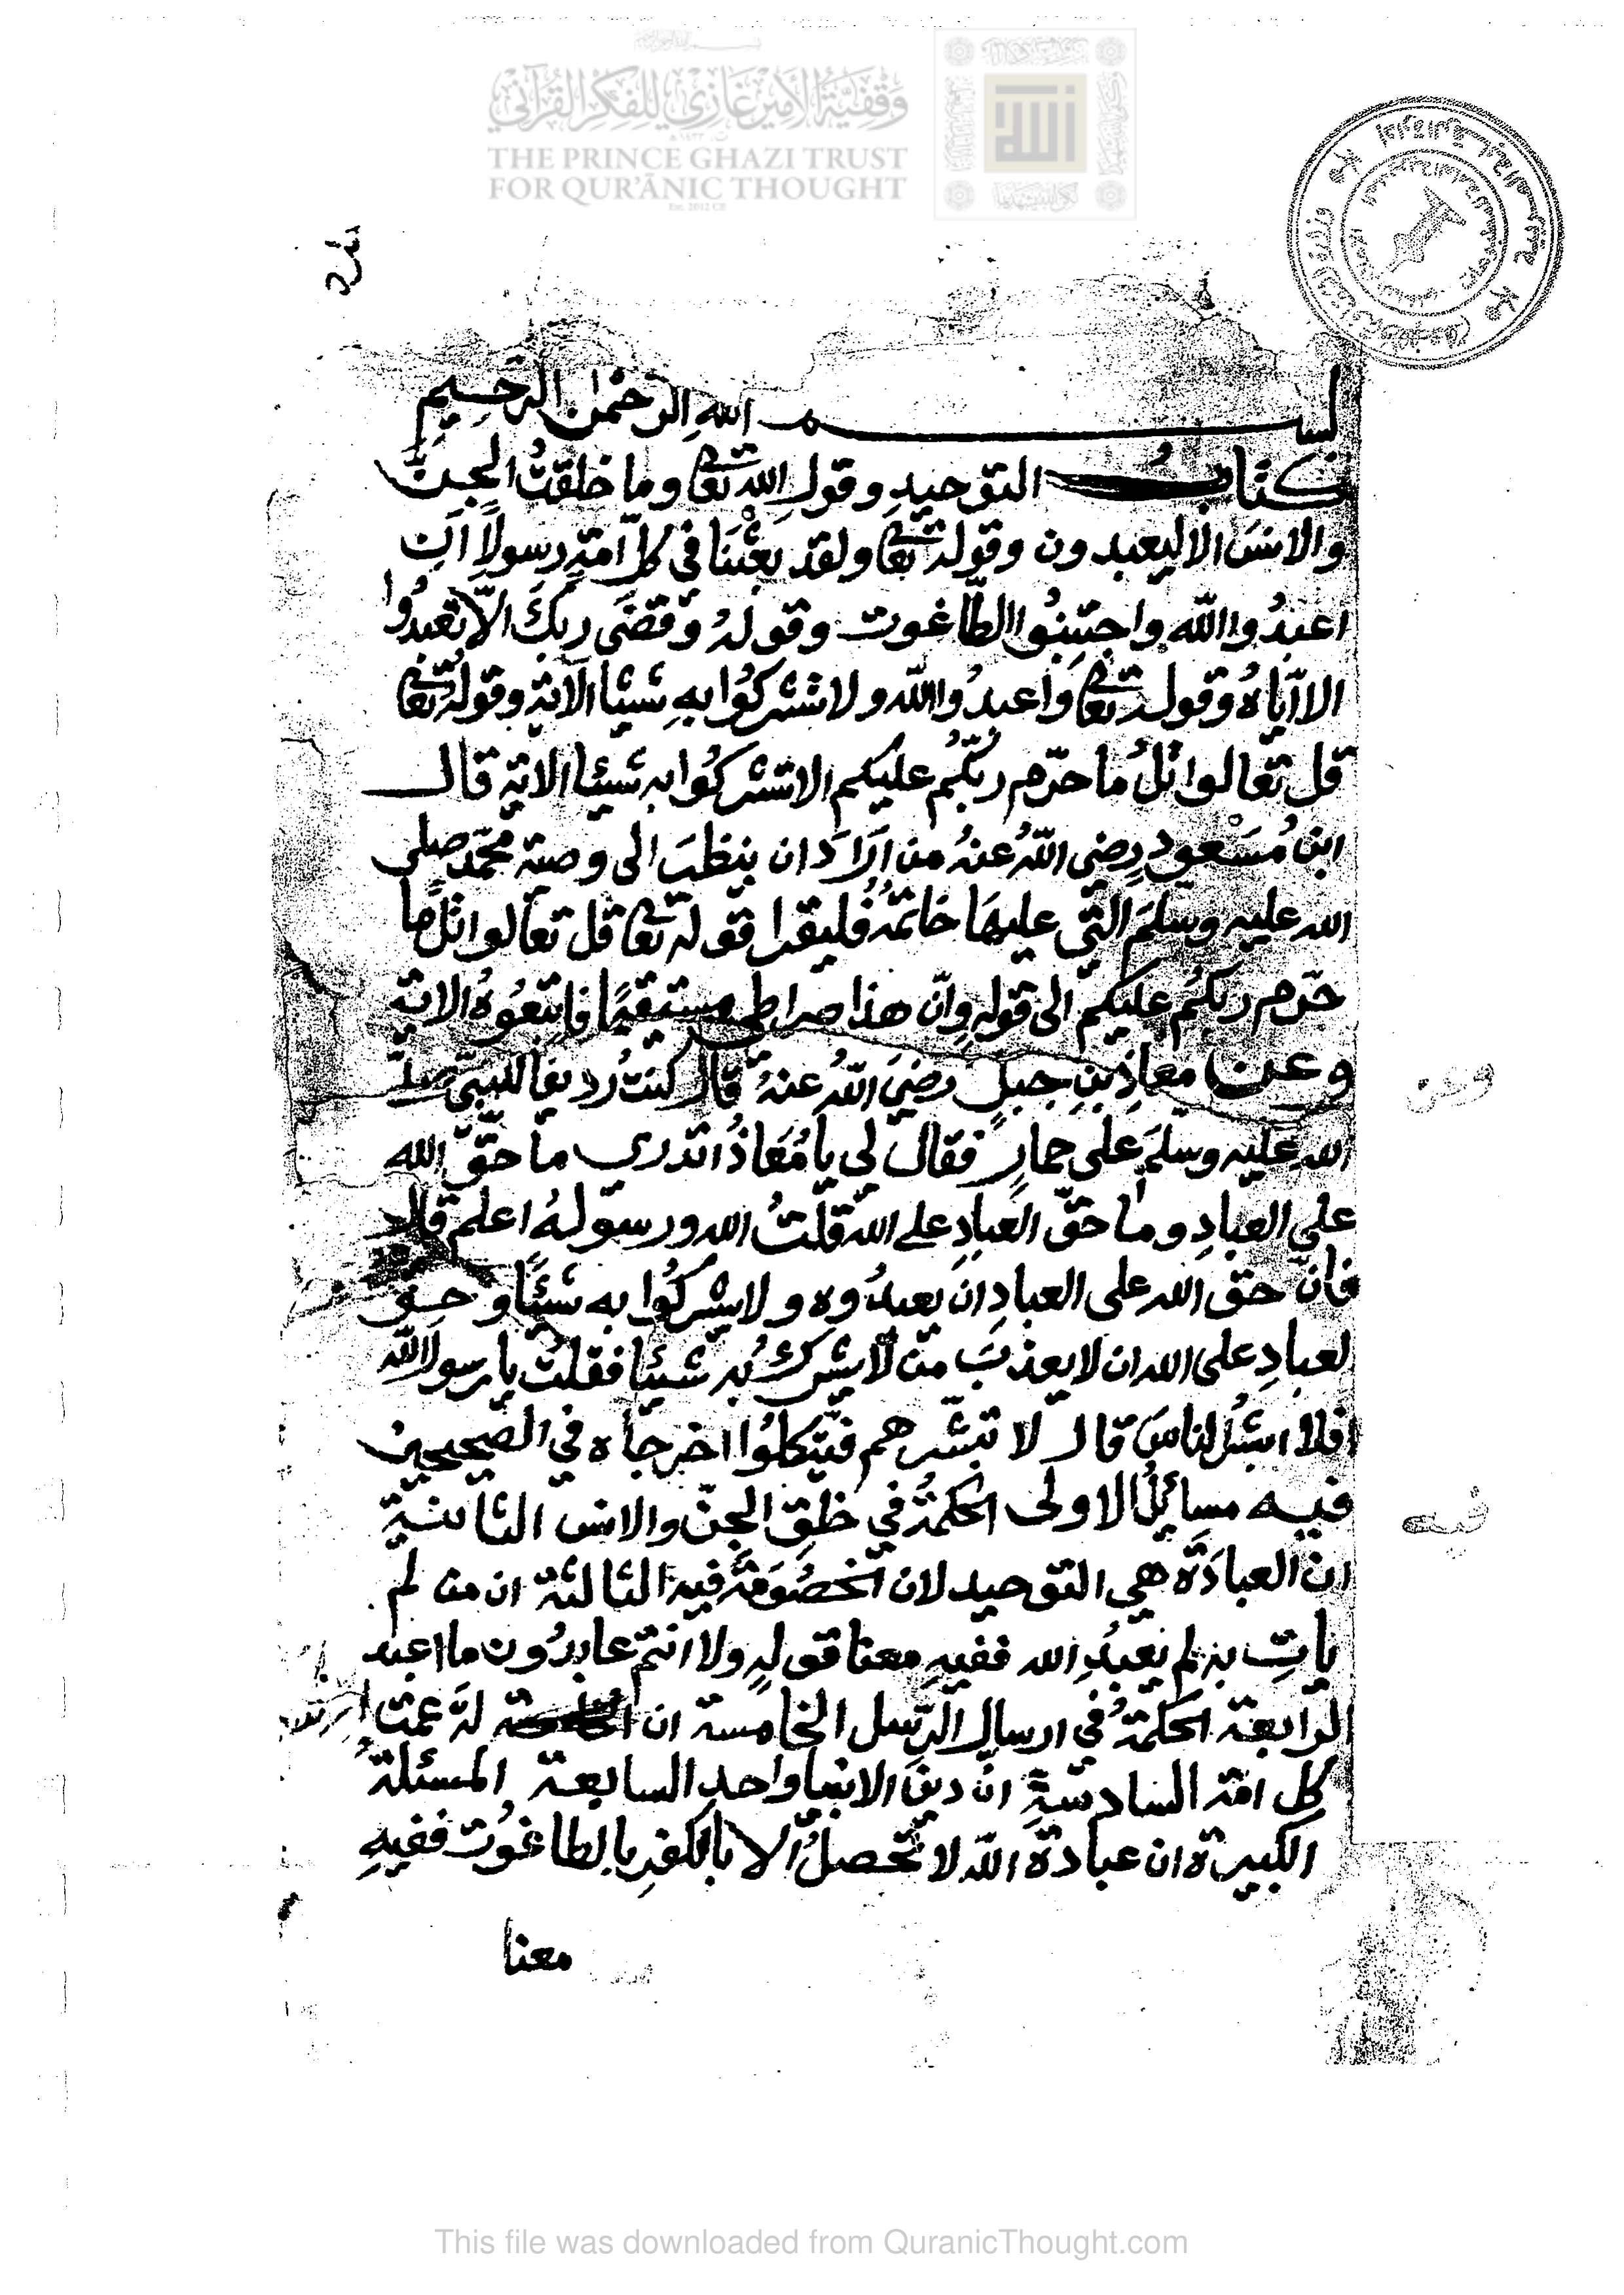 وقفية الأمير غازي للفكر القرآني
THE PRINCE GHAZI TRUST
FOR QUR'ĀNIC THOUGHT
Est. 2012 CE
الله
بسم الله الرحمن الرحيم
كتابُ التوحيدِ وقولِ الله تعا وما خلقتُ الجنَّ
والانسَ الا ليعبدون وقوله تعا ولقد بعثْنَا في كلِّ امّةٍ رسولاً اَنِ
اعبُدُوا اللّه واجتنِبُوا الطّاغوت وقولهُ وقضَى ربكَ الّا تعبدُوا
الا ايّاهُ وقوله تعا واعبدُوا اللّه ولا تشركُوا بهِ شيْئا الآية وقولهُ تعا
قل تعالوا اتلُ ما حرّم ربّكُم عليكم الا تشركُوا به شيئا الاية قال
ابنُ مُسْعود رضي اللّهُ عنهُ من اَرَادَ ان ينظرَ الى وصية محمّد صلى
الله عليه وسلمَ التّي عليهَا خاتمُهُ فليقرا قوله تعا قل تعالوا اتلُ ما
حرّم ربكُم عليكم الى قولهِ وانّ هذا صراطي مستقيمًا فاتبعُوهُ الاية
وعن معاذِ بنِ جبلٍ رضيَ اللّهُ عنهُ قال كنتُ رديفا للنبيّ صلى
الله عليه وسلمَ على حمارٍ فقال لي يا مُعَاذُ اتدري ما حقّ الله
على العبادِ وما حقّ العبادِ على الله قلتُ الله ورسولهُ اعلم قال
فانّ حق الله على العبادِ ان يعبدُوه ولا يشركُوا به شيْئًا وحق
لعبادِ على الله ان لا يعذبَ من لّا يشركُ به شيئا فقلتُ يا رسول اللّه
افلا ابشرُ لناسَ قال لا تبشّرهم فيتّكلُوا اخرجاه في الصّحيحين
فيه مسائلُ الاولى الحكمةُ في خلقِ الجنّ والانس الثانية
ان العبادَة هي التوحيد لان الخصُومَةَ فيه الثالثة ان من لم
ياتِ به لم يعبُدِ الله ففيهِ معنا قولهِ ولا انتم عابدُون ما اعبد
الرابعة الحكمةُ في ارسالِ الرّسل الخامسة ان الرسالة عمت
كل امّة السادسةِ انّ دينَ الانبيا واحد السابعة المسئلةُ
الكبيرة ان عبادة اللّه لا تحصلُ الا بالكفرِ بالطاغوُت ففيهِ
معنا
وعن
فيه
This file was downloaded from QuranicThought.com